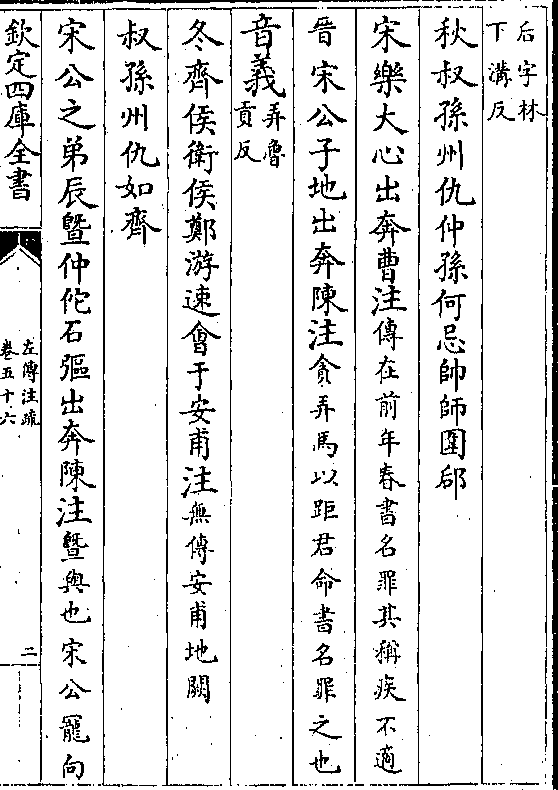 后字林
下溝反
秋叔孫州仇仲孫何忌帥師圍郈
宋樂大心出奔曹注傳在前年春書名罪其稱疾不適
晉宋公子地出奔陳注貪弄馬以距君命書名罪之也
音義弄魯
貢反
冬齊侯衛侯鄭游速會于安甫注無傳安甫地闕
叔孫州仇如齊
宋公之弟辰暨仲佗石彄出奔陳注暨與也宋公寵向
欽定四庫全書
左傳注疏
卷五十六
二